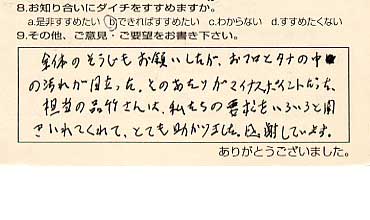 8.お知り合いにダイチをすすめますか。
a.是非すすめたい b.できればすすめたい c.わからない d.すすめたくない
9.その他、ご意見・ご要望をお書き下さい。
全体のそうじもお願いしたが、おフロとタナの中
の汚れが目立った。そのあたりがマイナスポイントだった。
担当の品竹さんは、私たちの要求をいろいろと聞
きいれてくれて、とても助かりました。感謝しています。
ありがとうございました。